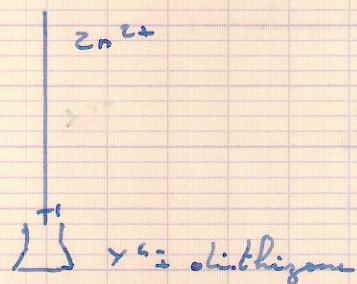 Zn²⁺
Y⁴⁻; dithizone